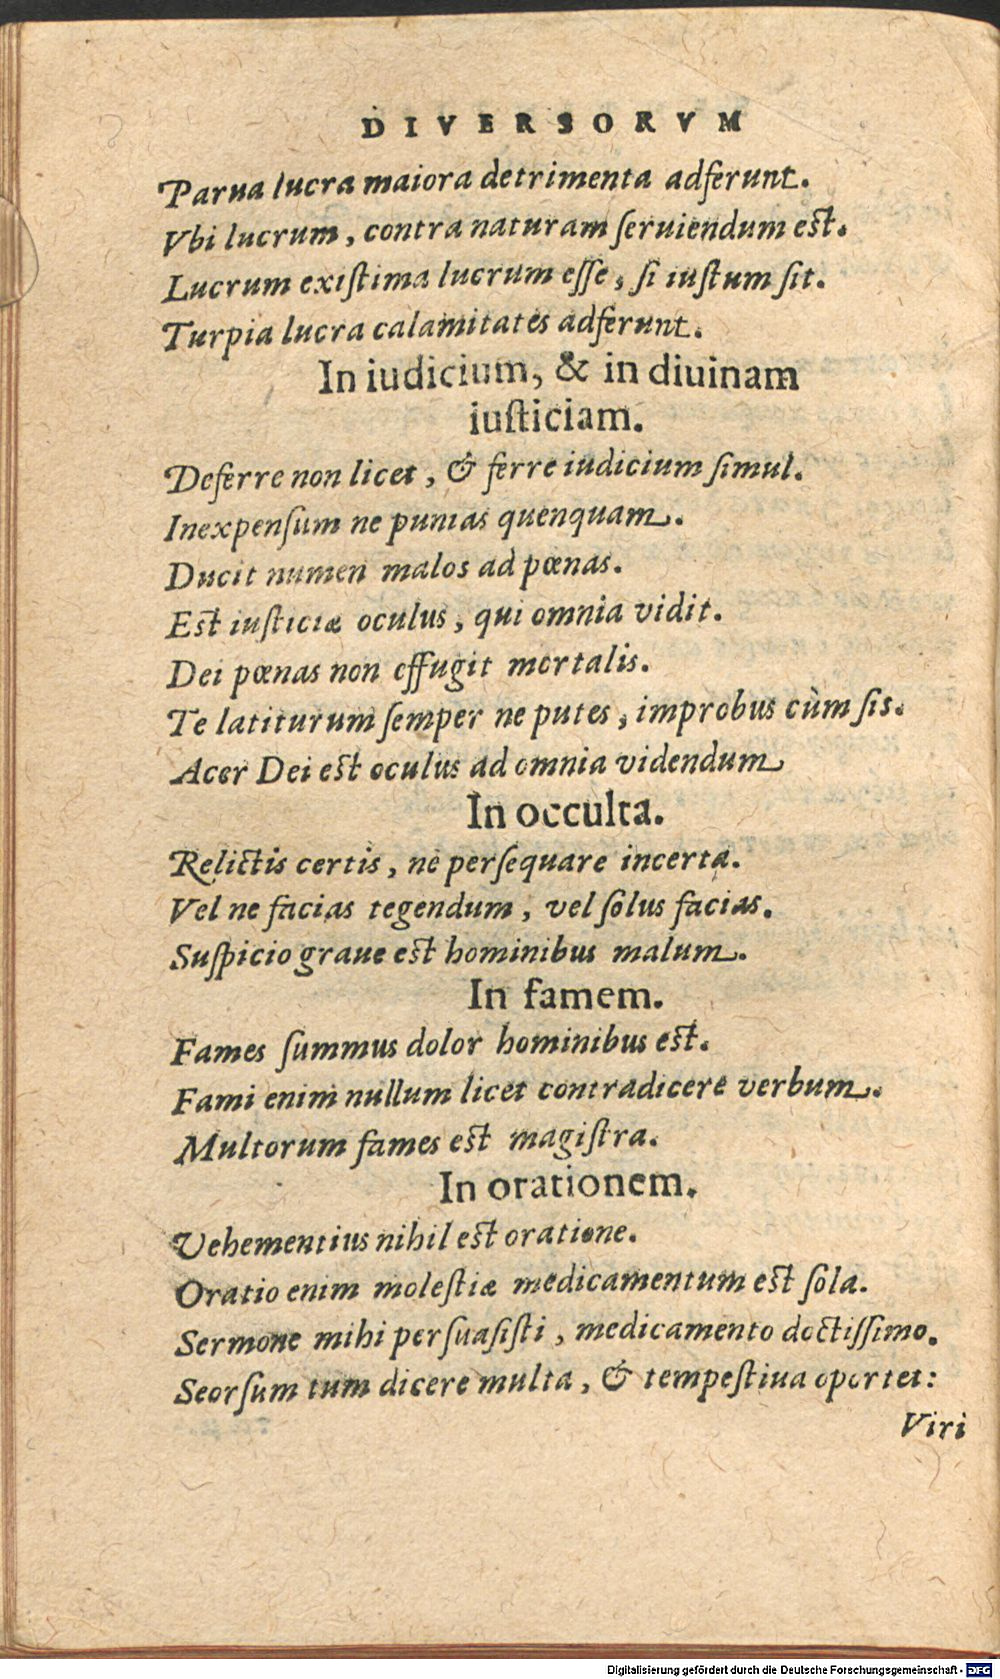 DIVERSORVM
Parua lucra maiora detrimenta adferunt.
Vbi lucrum, contra naturam ſeruiendum eſt.
Lucrum exiſtima lucrum eſſe, ſi iuſtum ſit.
Turpia lucra calamitates adferunt.
In iudicium, & in diuinam
iuſticiam.
Deferre non licet, & ferre iudicium ſimul.
Inexpenſum ne punias quenquam.
Ducit numen malos ad pœnas.
Eſt iuſticiæ oculus, qui omnia vidit.
Dei pœnas non effugit mortalis.
Te latiturum ſemper ne putes, improbus cùm ſis.
Acer Dei eſt oculus ad omnia videndum
In occulta.
Relictis certis, ne perſequare incerta.
Vel ne facias tegendum, vel ſolus facias.
Suſpicio graue eſt hominibus malum.
In famem.
Fames ſummus dolor hominibus eſt.
Fami enim nullum licet contradicere verbum.
Multorum fames eſt magiſtra.
In orationem.
Vehementius nihil eſt oratione.
Oratio enim moleſtiæ medicamentum eſt ſola.
Sermone mihi perſuaſiſti, medicamento doctiſſimo.
Seorſum tum dicere multa, & tempeſtiua oportet:
Viri
Digitalisierung gefördert durch die Deutsche Forschungsgemeinschaft - DFG